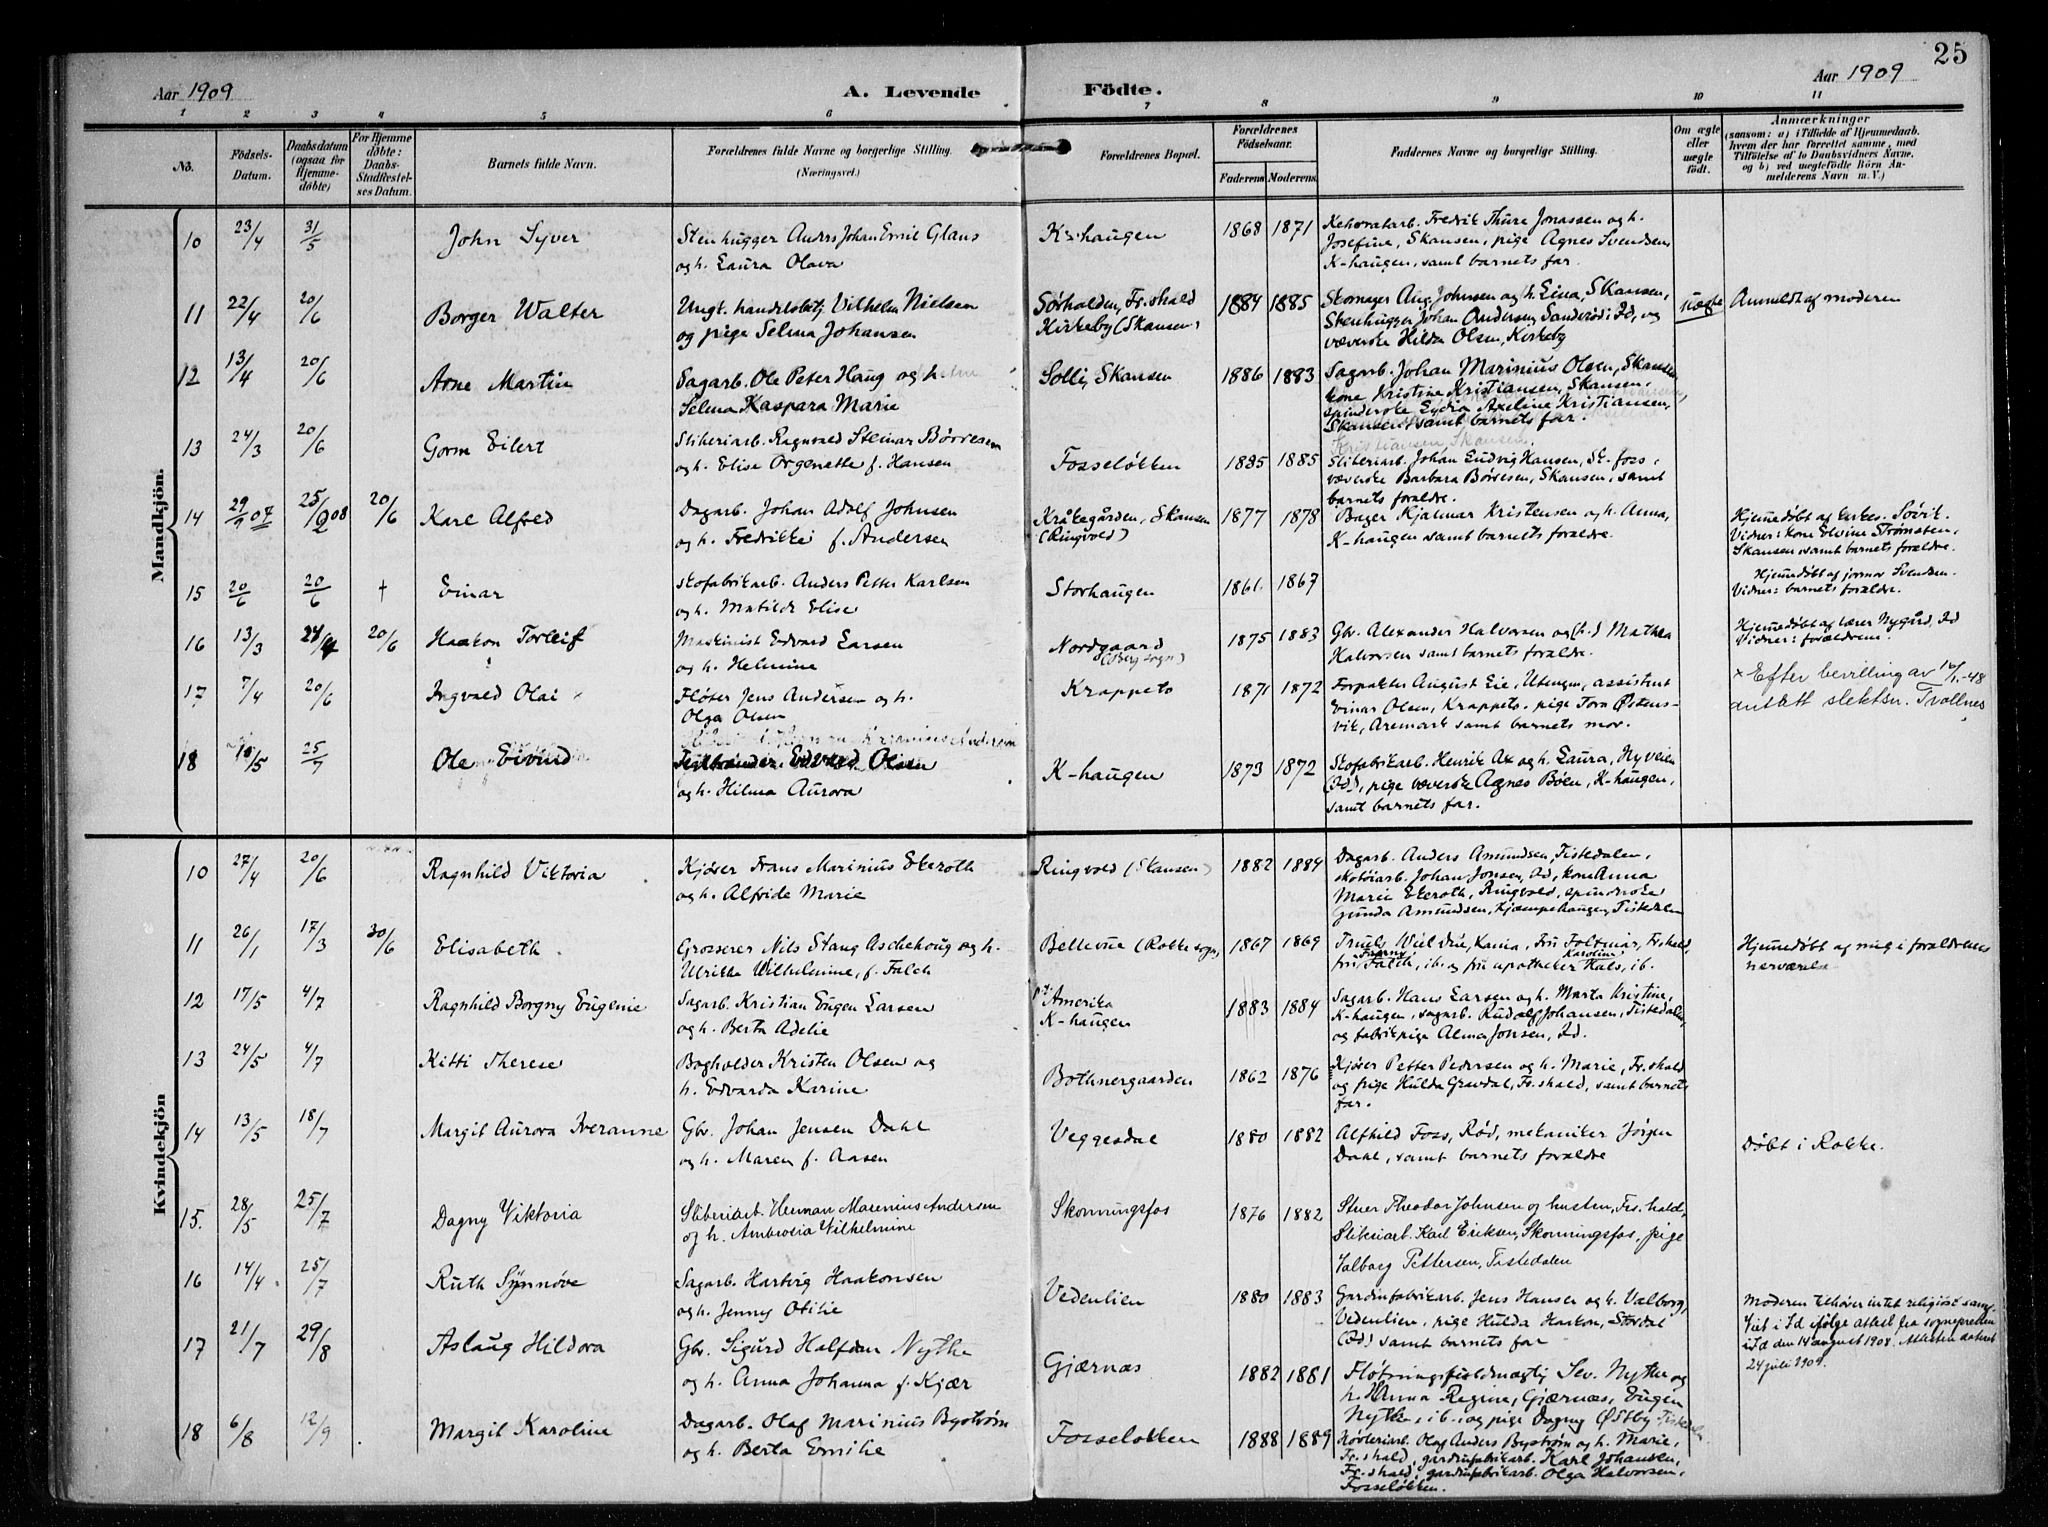 25
Aar 1909
A. Levende
Födte.
Aar 1909
1 2 3 4 5 6 7 8 9 10 11
No.
Födsels-
Datum.
Daabsdatum
(ogsaa for
Hjemme-
døbte)
For Hjemme
døbte:
Daabs-
Stadfæstel-
ses Datum.
Barnets fulde Navn.
Forældrenes fulde Navne og borgerlige Stilling.
(Næringsvei.)
Forældrenes Bopæl.
Forældrenes
Födselsaar.
Faderens
Moderens.
Faddernes Navne og borgerlige Stilling.
Om ægte
eller
uægte
födt.
Anmærkninger
(saasom: a) i Tilfælde af Hjemmedaab.
hvem der har forrettet samme, med
Tilföielse af to Daabsvidners Navne.
og b) ved uegtefödte Börn An-
melderens Navn m.V.)
Mandkjön.
10 23/4 31/5 John Syver
Stenhugger Anders Johan Emil Glans
og h. Laura Olava
K-haugen 1868 1871
Fredrik Thure Jonassen og h.
Josefine, Skansen, pige Agnes Svendsen
K-haugen, samt barnets far.
11 22/4 20/6 Borger Walter
Ungk. handelsbetj. Vilhelm Nielsen
og pige Selma Johansen
Sørhalden, Fr.shald
Kirkeby (Skansen)
1884 1885
Skomager Aug. Johnsen og h. Lina, Skansen,
Stenhugger Johan Andersen, Sanderød i Id, og
væverske Hilda Olsen, Kirkeby
uægte
Anmeldt af moderen
12 13/4 20/6 Arne Martin
Sagarb. Ole Peter Haug og h.
Selma Kaspara Marie
Solli, Skansen 1886 1883
Sagarb. Johan Marinius Olsen, Skansen,
kone Kristine Kristiansen, Skansen,
spinderske Lydia Axeline Kristiansen,
Skansen, samt barnets far.
13 24/3 20/6 Gorm Eilert
Sliberiarb. Ragnvald Steinar Børresen
og h. Elise Orgenette f. Hansen
Fosseløkken 1885 1885
Sliberiarb. Johan Ludvig Hansen, Sk. foss,
væverske Barbara Børresen, Skansen, samt
barnets forældre.
14 29/9 07 25/2 08 20/6 Karl Alfred
Dagarb. Johan Adolf Johnsen
og h. Fredrikke f. Andersen
Kråkegården, Skansen
(Ringvold)
1877 1878
Bager Hjalmar Kristensen og h. Anna,
K-haugen samt barnets forældre.
Hjemmedøbt af kirkes. Søvik.
Vidner: kone Elvine Strømsten,
Skansen samt barnets forældre.
15 20/6 20/6 † Einar
Skofabrikarb. Anders Petter Karlsen
og h. Matilde Elise
Storhaugen 1861. 1867
Hjemmedøbt af jormor Svendsen.
Vidner: barnets forældre.
16 13/3 24/4 20/6 Haakon Torleif
Maskinist Edvard Larsen
og h. Helmine
Nordgaard
(Berg sogn)
1875 1883
Gbr. Alexander Halvorsen og (h.) Mathea
Halvorsen samt barnets forældre.
Hjemmedøbt af lærer Nygård, Id
Vidner: forældrene.
17 7/4 20/6 Ingvald Olai ×
Fløter Jens Andersen og h.
Olga Olsen
Krappeto 1871 1872
Forpakter August Eie, Utengen, assistent
Einar Olsen, Krappeto, pige Tora Østens-
vik, Aremark samt barnets mor.
× Efter bevilling av 16/1.-48
antatt slektsn. Tvallnes
18 10/5 25/7 Ole Eivind
Edvard Olsen
og h. Hilma Aurora
K-haugen 1873 1872
Skofabrikarb. Henrik Ax og h. Laura, Nyveien
(Id), pige væverske Agnes Bøen, K-haugen,
samt barnets far.
Kvindekjön
10 27/4 20/6 Ragnhild Viktoria
Kjører Frans Marinius Ekeroth
og h. Alfride Marie
Ringvold (Skansen) 1882 1884
Dagarb. Anders Amundsen, Tistedalen,
skotøiarb. Johan Jonsen, Id, kone Anna
Marie Ekeroth, Ringvold, spinderske
Gunda Amundsen, Kjæmpehaugen, Tistedalen
11 26/1 17/3 30/6 Elisabeth.
Grosserer Nils Stang Aschehoug og h.
Ulrikke Wilhelmine, f. Falch
Bellevue (Rokke sogn) 1867 1869
Truels Wiel Fru Foltmar, Fr.shald,
fru Falch, ib. og fru apotheker Karoline Hals, ib.
Hjemmedøbt af mig i forældrenes
nærvære
12 17/5 4/7 Ragnhild Borgny Eugenie
Sagarb. Kristian Eugen Larsen
og h. Berta Adelie
p.t. Amerika
K-haugen
1883 1884
Sagarb. Hans Larsen og h. Marta Kristine,
K-haugen, sagarb. Rudolf Johansen, Tistedalen,
og fabrikpige Alma Jonsen, Id.
13 24/5 4/7 Kitti Therese
Bogholder Kristen Olsen og
h. Edvarda Karine
Bothnergaarden 1862 1876
Kjører Petter Pedersen og h. Marie, Fr.shald
og pige Hulda Gravdal, Fr.shald, samt barnets
far.
14 13/5 18/7 Margit Aurora Iveranne
Gbr. Johan Jensen Dahl
og h. Maren f. Aasen
Veggesdal 1880 1882
Alfhild Foss, Rød, mekaniker Jørgen
Dahl, samt barnets forældre
Døbt i Rokke.
15. 28/5 25/7 Dagny Viktoria
Sliberiarb. Herman Marenius Andersen
og h. Ambrosia Vilhelmine
Skonningsfos 1876 1882
Stuer Theodor Johnsen og hustru, Fr.shald,
Sliberiarb. Karl Eriksen, Skonningsfos, pige
Valborg Pettersen, Tistedalen
16 14/4 25/7 Ruth Synnøve
Sagarb. Hartvig Haakonsen
og h. Jenny Otilie
Vedenlien 1880 1883
Gardinfabrikarb. Jens Hansen og h. Valborg,
Vedenlien, pige Hulda Haakon, Stordal
(Id) samt barnets far
Moderen tilhører intet religiøst sam-
i Id ifølge attest fra sognepresten
i Id den 14 august 1908. Attesten dateret
24 juli 1909.
17 21/7 29/8 Aslaug Hildora
Gbr. Sigurd Halfdan Nythe
og h. Anna Johanna f. Kjær
Gjærnæs 1882 1881
Fløtningsfuldmægtig Sev. Nythe og
h. Anna Regine, Gjærnæs, Eugen
Nythe, ib. og pige Dagny Østby Tistedalen.
18 6/8 12/9 Margit Karoline
Dagarb. Olaf Marinius Bystrøm
og h. Berta Emilie
Fosseløkken 1888 1889
Høvleriarb. Olaf Anders Bystrøm og h. Marie,
Fr.shald, gardinfabrikarb. Karl Johansen,
Fr.shald, gardinfabrikarb. Olga Halvorsen,
Fosseløkken.